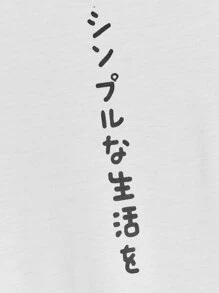 シンプルな生活を